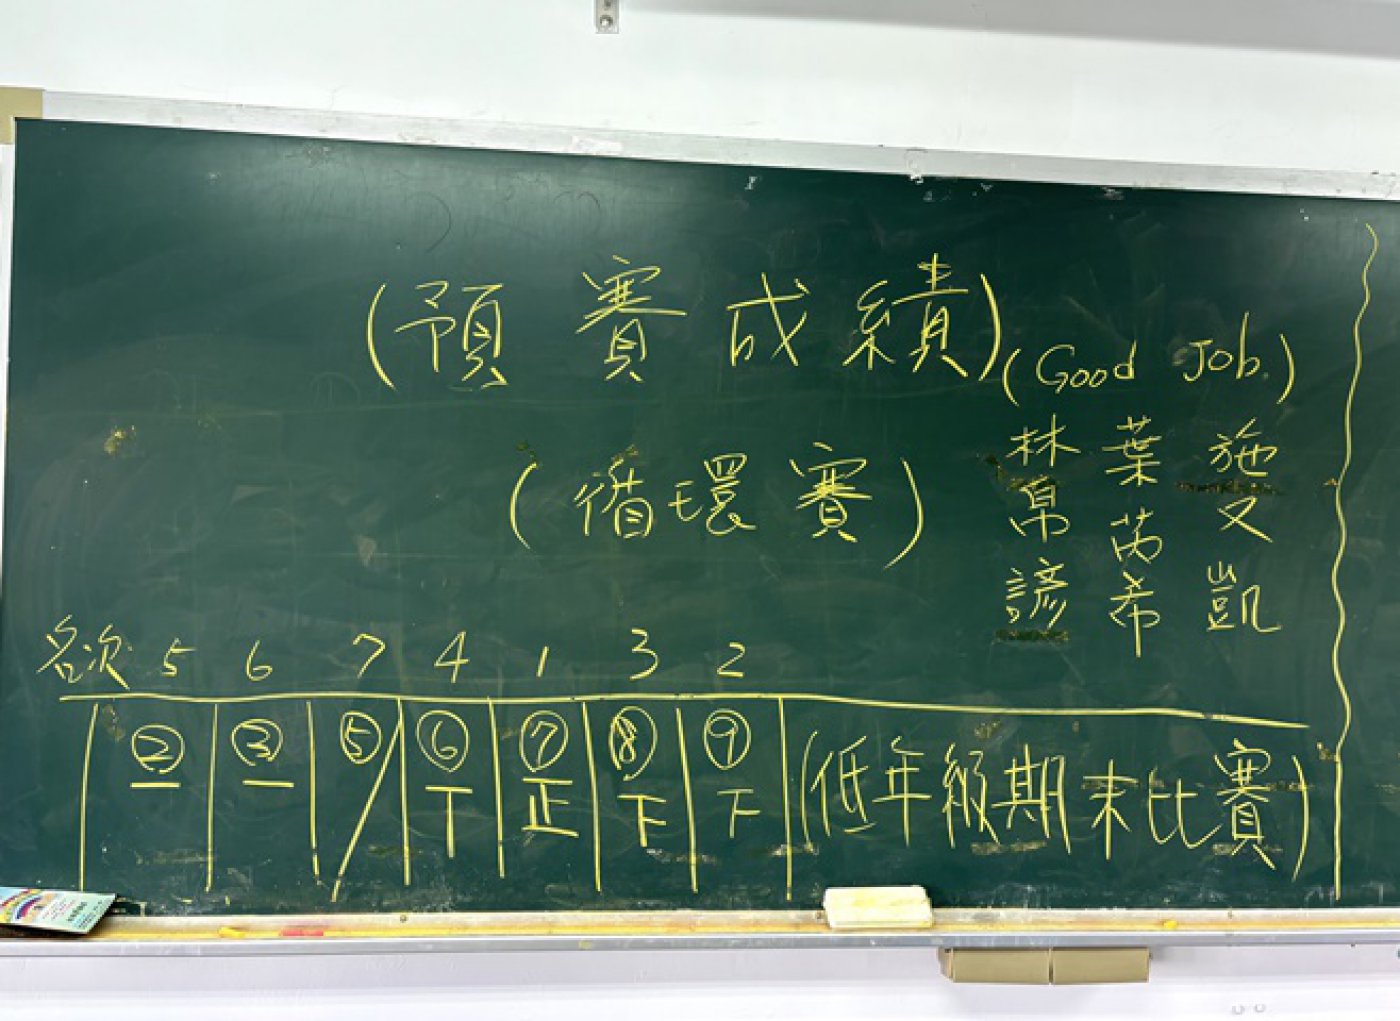 (預賽成績)
(Good Job.)
(循環賽)
林帛諺
葉芮希
施又凱
名次 5 6 7 4 1 3 2
② ③ ⑤ ⑥ ⑦ ⑧ ⑨ (低年級期末比賽)
一 一 丅 正 下 下